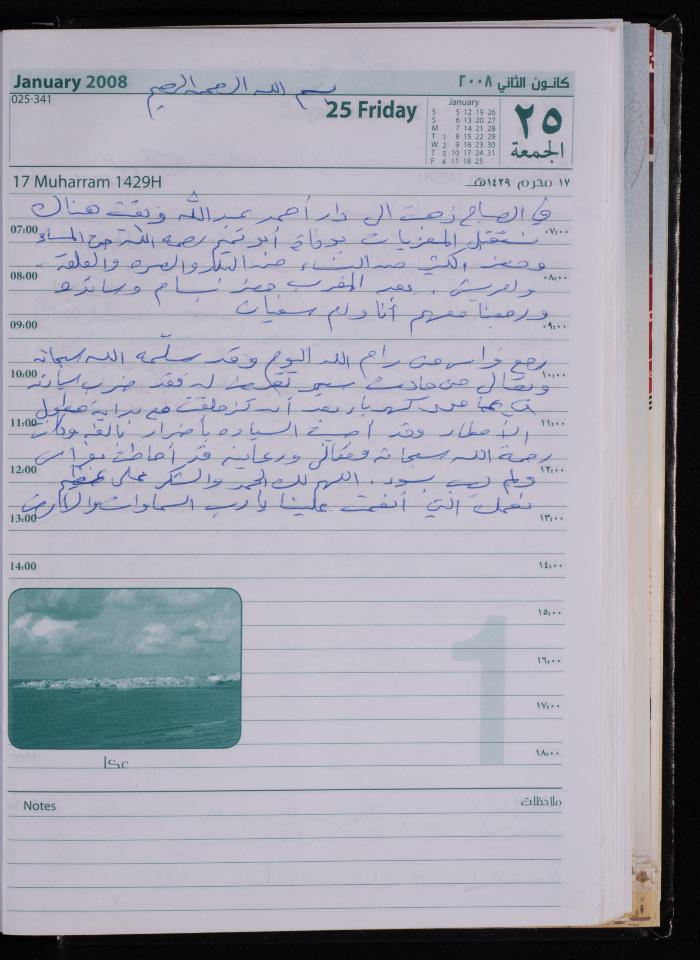 January 2008
كانون الثاني ٢٠٠٨
بسم الله الرحمن الرحيم
025-341
25 Friday
January
S 5 12 19 26
S 6 13 20 27
M 7 14 21 28
T 1 8 15 22 29
W 2 9 16 23 30
T 3 10 17 24 31
F 4 11 18 25
٢٥
الجمعة
17 Muharram 1429H
١٧ محرم ١٤٢٩هـ
في الصباح ذهبت الى دار أحمد عبدالله وبقيت هناك
07:00 نستقبل المعزيات بوفاة أبو تميم رحمه الله حتى المساء ٠٧:٠٠
وحضر الكثير من النساء من البلد والبيره
08:00 ٠٨:٠٠
. بعد المغرب حضر بسام وسائده
ورجعنا معهم أنا وأم سفيان
09:00 ٠٩:٠٠
رجع فراس من رام الله اليوم وقد سلّمه الله سبحانه
10:00 وتعالى من حادث سير تعرض له فقد ضرب سيارته ١٠:٠٠
في عمود كهرباء بعد أن تزحلقت مع بداية هطول
11:00 الأمطار وقد أصيبت السياره بأضرار بالغه وكانت ١١:٠٠
رحمة الله سبحانه وتعالى ورعايته قد أحاطت بفراس
12:00 ولم يصب بسوء. اللهم لك الحمد والشكر على ١٢:٠٠
نعمك التي أنعمت علينا يا رب السماوات والأرض
13:00 ١٣:٠٠
14:00 ١٤:٠٠
١٥:٠٠
١٦:٠٠
١٧:٠٠
١٨:٠٠
1
عكا
Notes
ملاحظات